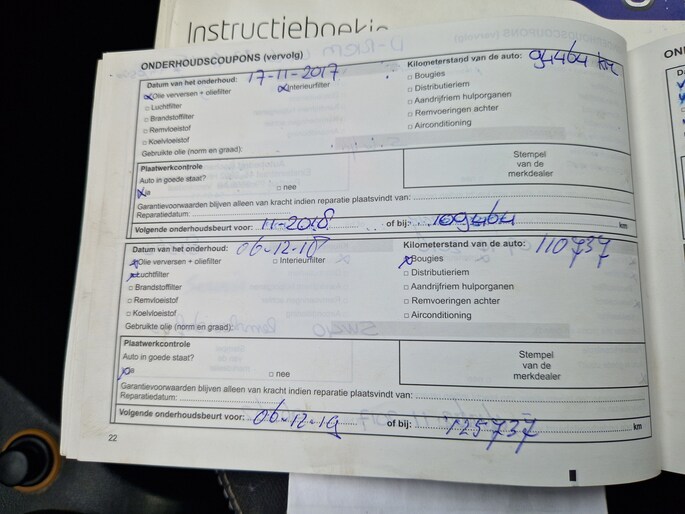 Instructieboekje
ONDERHOUDSCOUPONS (vervolg)
Datum van het onderhoud: 17-11-2017
Kilometerstand van de auto: 94464 km
Olie verversen + oliefilter
Interieurfilter
Bougies
Luchtfilter
Distributieriem
Brandstoffilter
Aandrijfriem hulporganen
Remvloeistof
Remvoeringen achter
Koelvloeistof
Airconditioning
Gebruikte olie (norm en graad):
Plaatwerkcontrole
Auto in goede staat?
Ja
nee
Stempel
van de
merkdealer
Garantievoorwaarden blijven alleen van kracht indien reparatie plaatsvindt van:
Reparatiedatum:
Volgende onderhoudsbeurt voor: 11-2018 of bij: 109464 km
Datum van het onderhoud: 06-12-18
Kilometerstand van de auto: 110737
Olie verversen + oliefilter
Interieurfilter
Bougies
Luchtfilter
Distributieriem
Brandstoffilter
Aandrijfriem hulporganen
Remvloeistof
Remvoeringen achter
Koelvloeistof
Airconditioning
Gebruikte olie (norm en graad):
Plaatwerkcontrole
Auto in goede staat?
Ja
nee
Stempel
van de
merkdealer
Garantievoorwaarden blijven alleen van kracht indien reparatie plaatsvindt van:
Reparatiedatum:
Volgende onderhoudsbeurt voor: 06-12-19 of bij: 125737 km
22